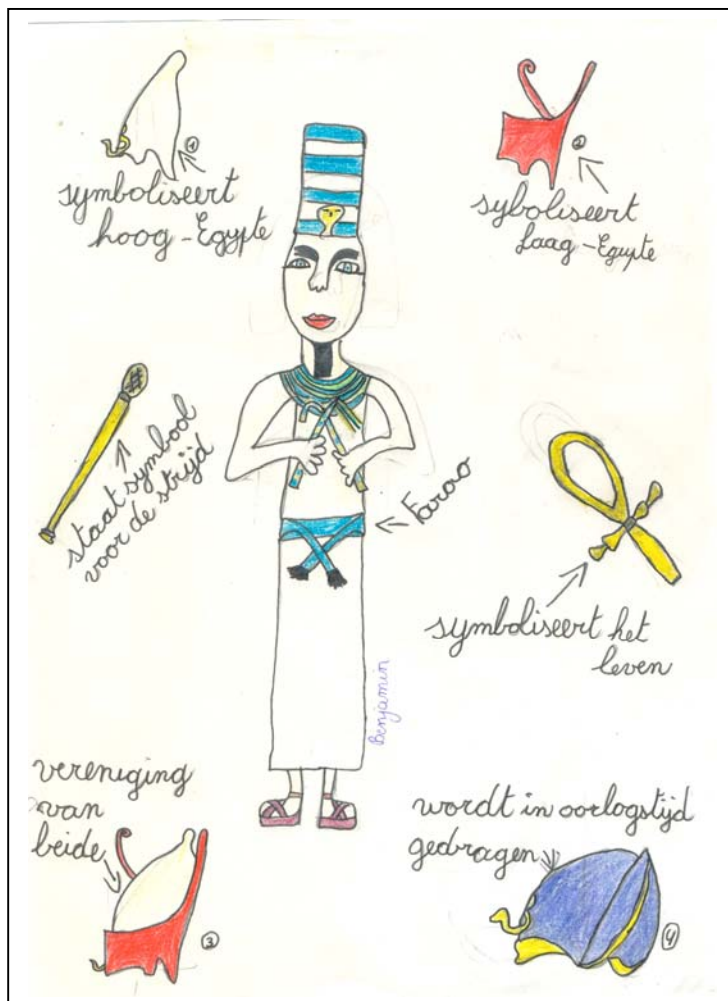 1
symboliseert
hoog-Egypte
2
syboliseert
Laag-Egypte
staat symbool
voor de strijd
Farao
symboliseert het
leven
Benjamin
vereniging
van
beide
3
wordt in oorlogstijd
gedragen
4